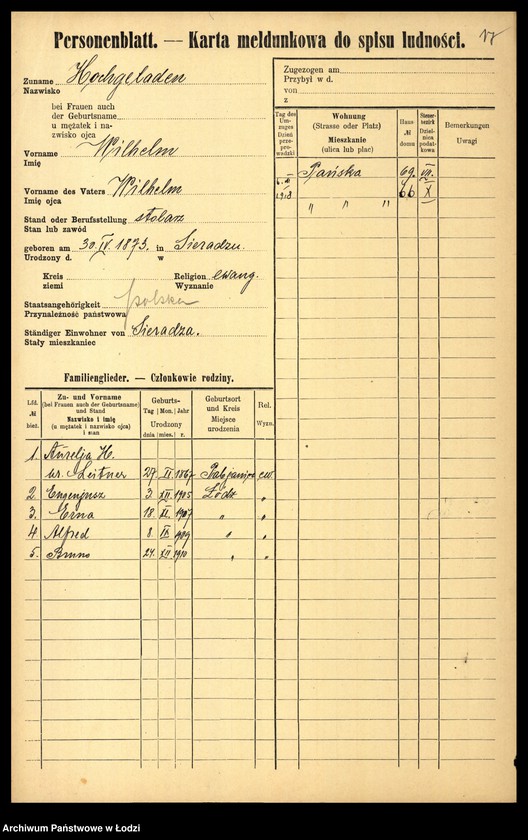 Personenblatt. — Karta meldunkowa do spisu ludności.
17
Zuname Hochgeladen
Nazwisko
bei Frauen auch
der Geburtsname
u mężatek i na-
zwisko ojca
Vorname Wilhelm
Imię
Vorname des Vaters Wilhelm
Imię ojca
Stand oder Berufsstellung stolarz
Stan lub zawód
geboren am 30. IV. 1873. in Sieradzu.
Urodzony d. w
Kreis Religion ewang.
ziemi Wyznanie
Staatsangehörigkeit polska
Przynależność państwowa
Ständiger Einwohner von Sieradza.
Stały mieszkaniec
Zugezogen am
Przybył w d.
von
z
Tag des Um-zuges Dzień prze-prowadzki
Wohnung (Strasse oder Platz) Mieszkanie (ulica lub plac)
Haus-№ domu
Steuer-bezirk Dziel-nica podat-kowa
Bemerkungen Uwagi
Pańska 69. VII.
1918 " " " 66 X
Familienglieder. — Członkowie rodziny.
Lfd. № bież.
Zu- und Vorname (bei Frauen auch der Geburtsname) und Stand Nazwisko i imię (u mężatek i nazwisko ojca) i stan
Geburts- Tag Mon. Jahr Urodzony dnia mies. r.
Geburtsort und Kreis Miejsce urodzenia
Rel. Wyzn.
1. Aurelja H.
ur. Leitner 27 II 1867 Pabjanice ew.
2. Eugenjusz 3 XII 1905 Łódź "
3. Erna 18 XI 1907 " "
4. Alfred 8. IX 1909 " "
5. Bruno 24. XII 1910 " "
Archiwum Państwowe w Łodzi